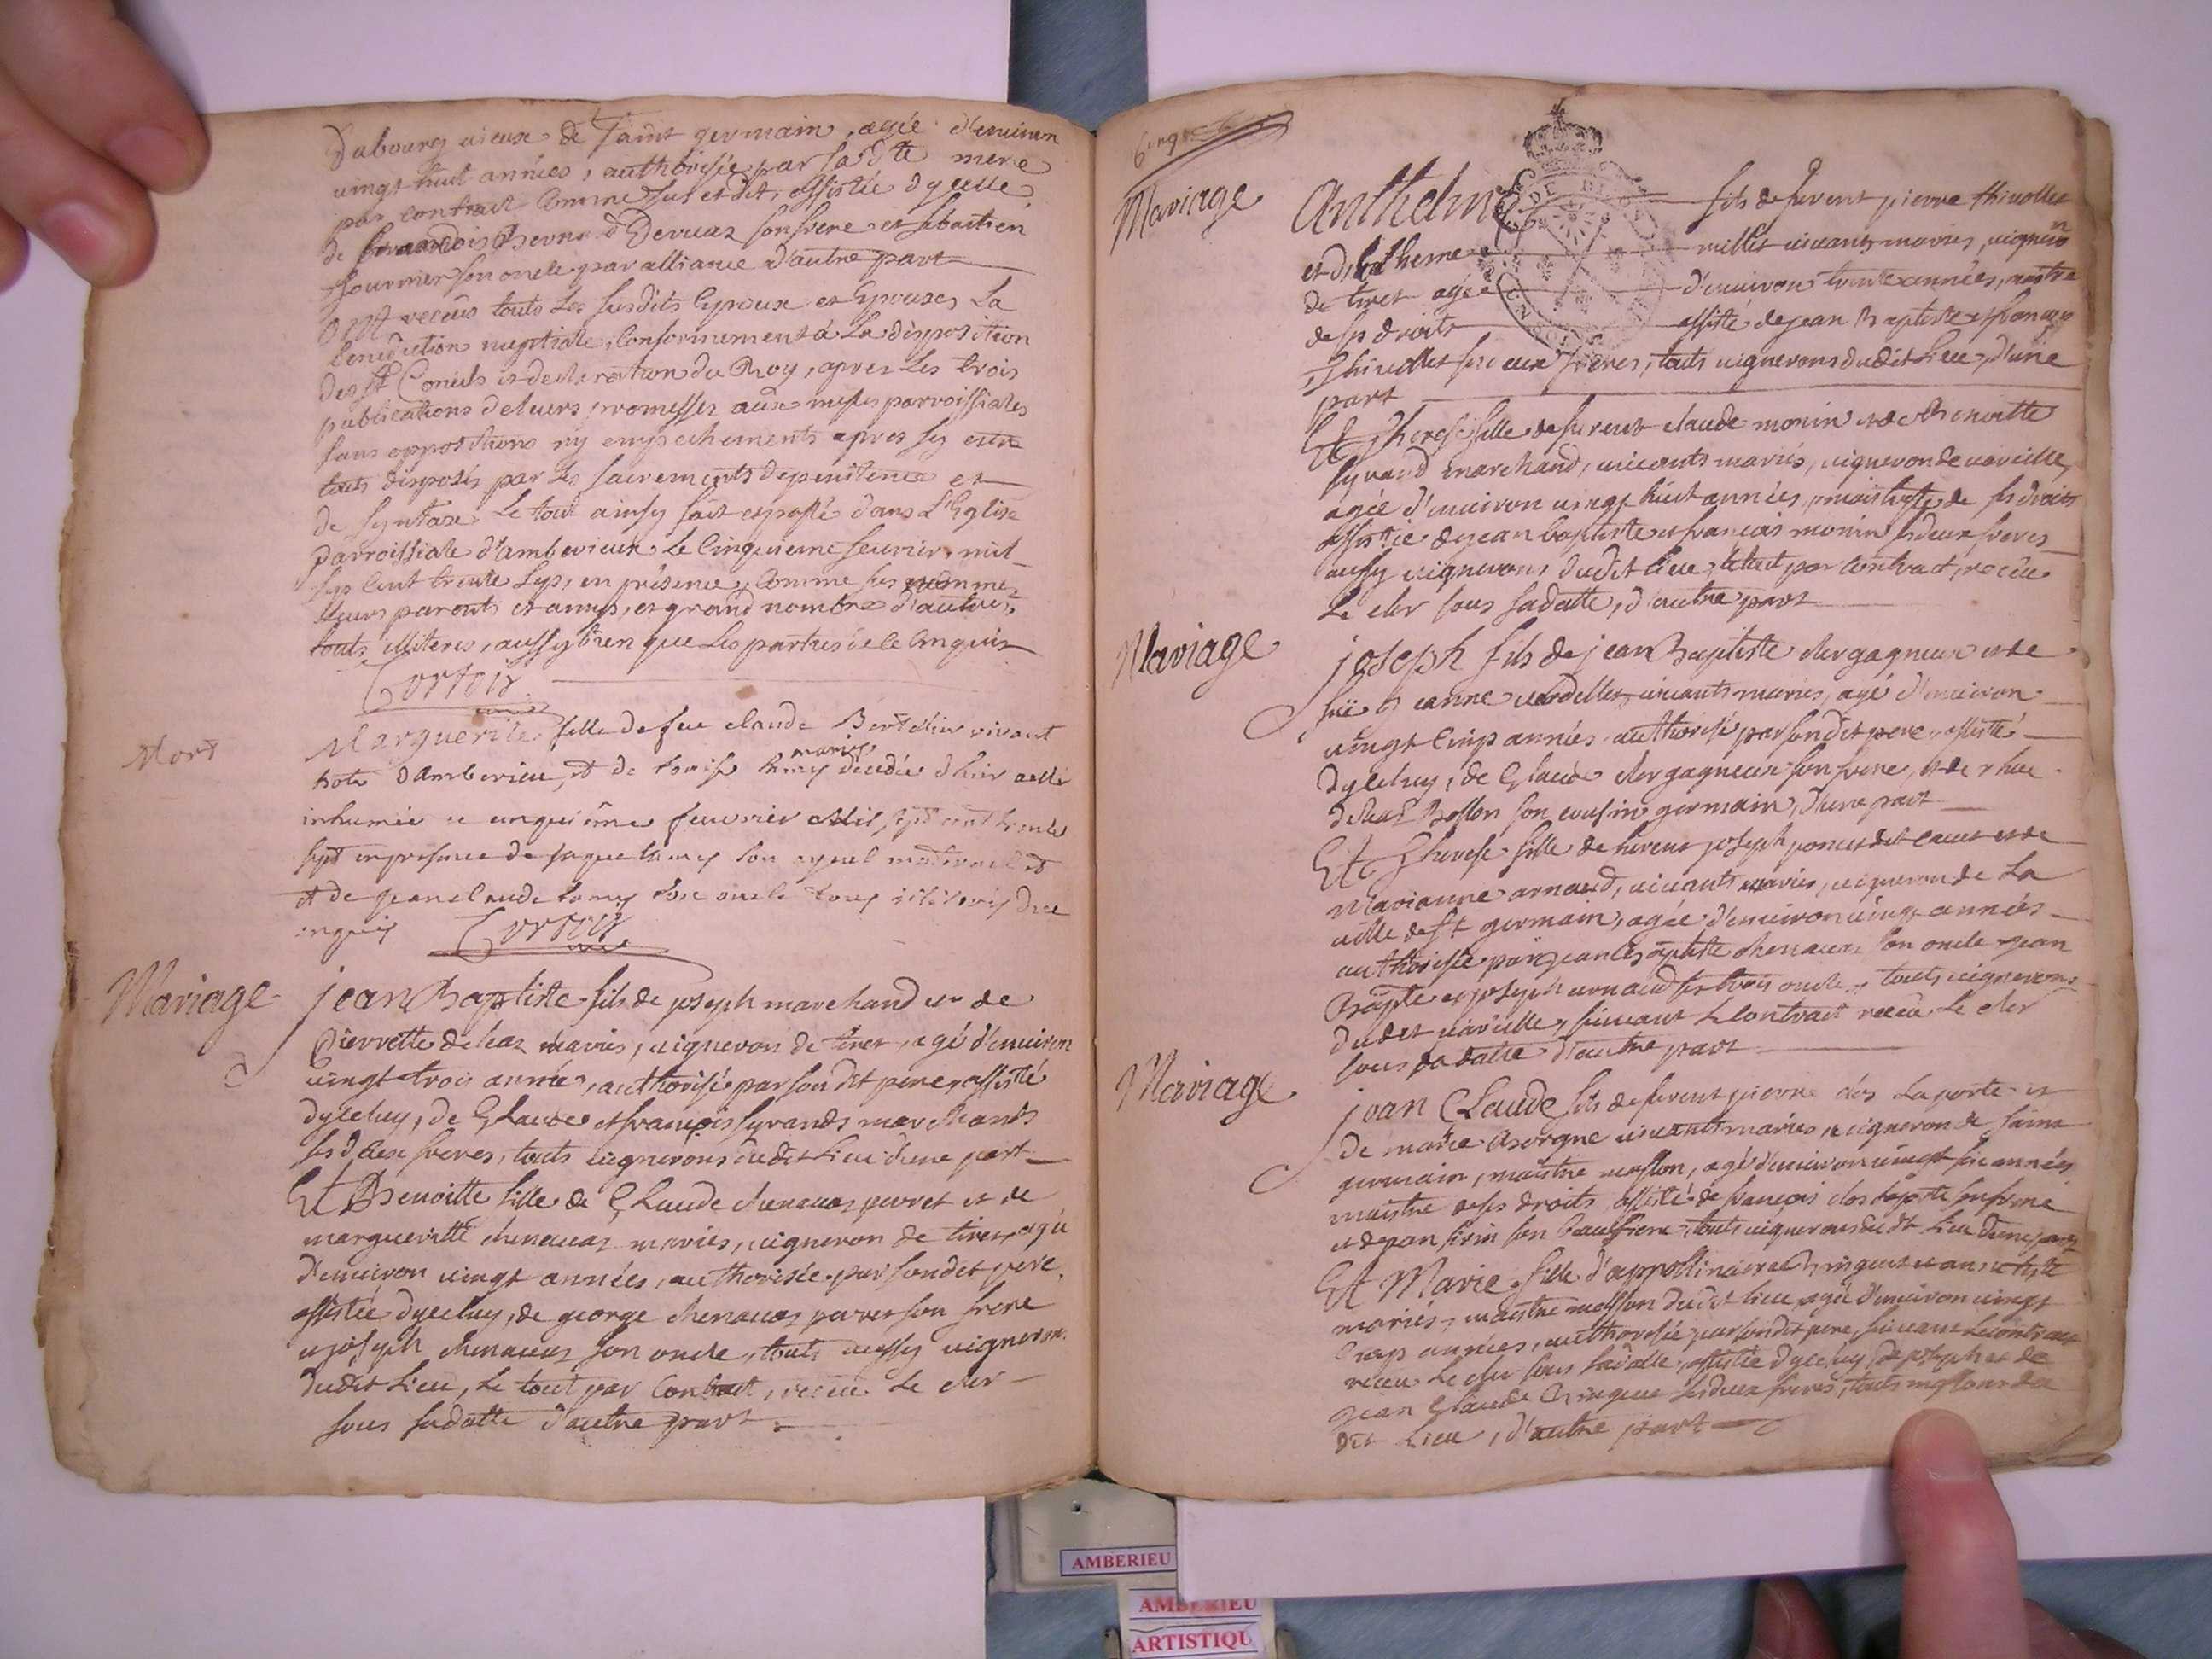 Dubourg vieux de Saint germain, agée d'environ
vingt huit années, authorisée par sa d'te mere
par contract Comme sus est dit, assistée dycelle,
de Bernard Dervaz son frere et sebastien
fournier son oncle par alliance d'autre part
ont recëus touts les susdits Epoux et Epouses la
benediction nuptiale, Conformement à la disposition
des st Conciles et declaration du Roy, apres les trois
publications de leurs promesses aux messes parroissiales
sans oppositions ny empechements apres sy estre
touts disposés par les sacrements de penitence et
de syntaxe le tout ainsy fait et passé dans L'Eglise
parroissiale d'amberieux le Cinquieme feuvrier mil
sep cent trente sept, en presence, Comme sus
leurs parents et amys, et grand nombre d'autres,
touts illiteres, aussy bien que les parties de ce enquis
Cortois
Mort
Marguerite fille de feu claude vivant
hote d'Amberieu, et de Louise Lamy mariés décedée d'hier a esté
inhumée ce cinquiéme feuvrier Mil sept cent trente
sept en presence de Jaque Lamy son ayeul maternel
et de jean claude Lamy son oncle tous illiterés de ce
enquis Cortois
Mariage
jean Baptiste fils de joseph marchand et de
Pierrette deleaz mariés, vigneron de tiret, agé d'environ
vingt trois années, authorisé par son dit pere, assisté
dyceluy, de Claude et françois syrands marchands
ses deux freres, touts vignerons dudit Lieu d'une part
Et Benoitte fille de Claude chenavaz perret et de
margueritte chenavaz mariés, vigneron de tiret, agée
d'environ vingt années, authorisée par sondit pere,
assistée dyceluy, de george chenavaz perret son frere
et joseph chenavaz son oncle, touts aussy vignerons
dudit Lieu, le tout par Contract, recëu le cler
sous sa datte d'autre part
Mariage
Anthelme fils de furent pierre thivollet
et d' millet vivants mariés, vigneron
de tiret agée d'environ trente années, maitre
de ses droits assisté de jean Baptiste et françois
Thivollet ses deux freres, touts vignerons dudit Lieu, d'une
part
Et Therese fille de furent claude monin et de Benoitte
syrand marchand, vivants mariés, vigneron de vareille,
agée d'environ vingt huit années, maistresse de ses droits
assistée de jean baptiste et françois monin ses deux freres
aussy vignerons dudit lieu, le tout par Contract, recëu
le cler sous sa datte, d'autre part
Mariage
joseph fils de jean Baptiste clergagneux et de
vivants mariés, agé d'environ
vingt Cinq années authorisé par son dit pere, assisté
dyceluy, de Claude clergagneux son frere, et de
Boston son cousin germain, d'une part
Et Therese fille de furent joseph poncet dit et de
Marianne arnaud, vivants mariés, vigneron de La
ville de st germain, agée d'environ vingt années
authorisée par jean Baptiste chenavaz son oncle jean
Bapte et joseph arnaud ses trois oncles, touts vignerons
dudit vareille, suivant le Contract recëu le cler
sous sa datte d'autre part
Mariage
jean Claude fils de furent pierre clos Laporte et
de marie vivants mariés, vigneron de saint
germain, maistre masson, agé d'environ vingt six années
maistre de ses droits, assisté de françois clos Laporte son frere
et de jean son Beaufrere, touts vignerons dudit Lieu d'une part
Et Marie fille d'appollinaire et anne
mariés, maistre masson dudit lieu agée d'environ vingt
années, authorisée par sondit pere suivant le Contract
recëu le cler sous sa datte, assistée dyceluy, de joseph et de
jean Claude ses deux freres, touts massons du
dit Lieu, d'autre part
AMBERIEU
AMBERIEU
ARTISTIQU